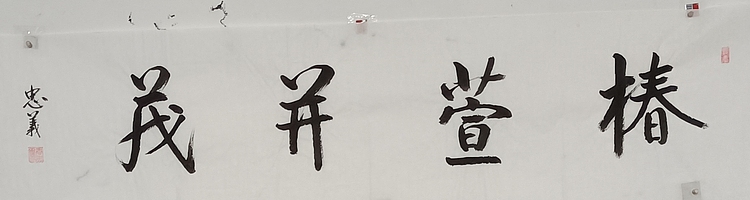 椿萱并茂
忠義